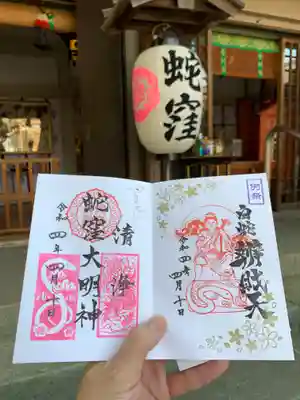 蛇窪
蛇窪
大明神
清
澄
令和四年四月十日
例祭
白蛇辨財天
令和四年四月十日